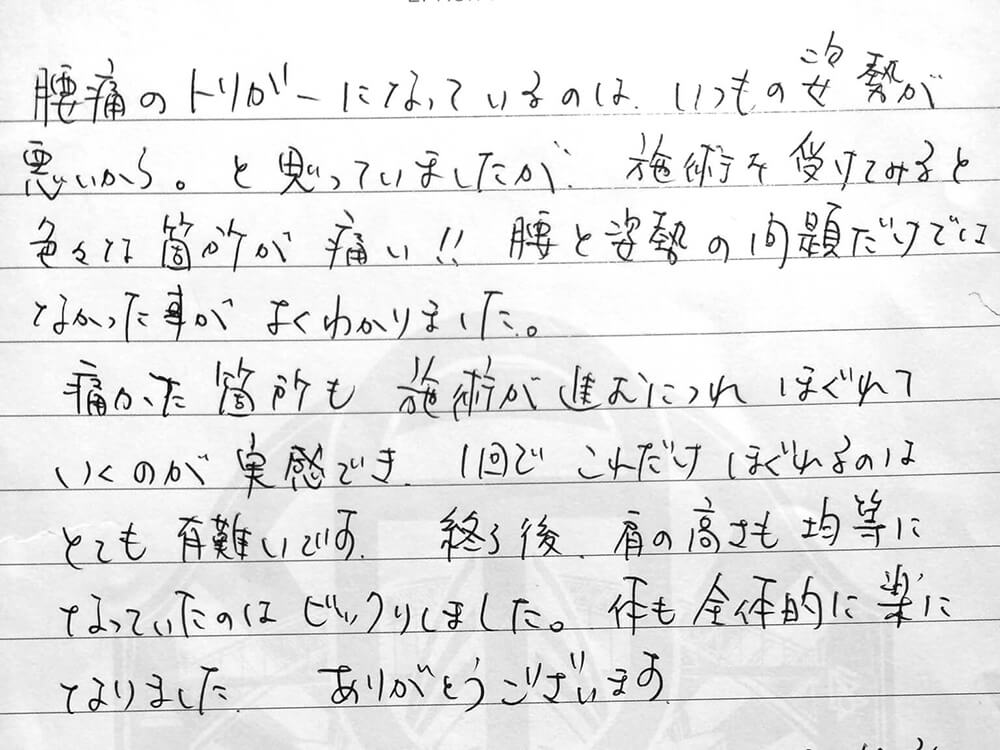 腰痛のトリガーになっているのは、いつもの姿勢が
悪いから。と思っていましたが、施術を受けてみると
色々な箇所が痛い!! 腰と姿勢の問題だけでは
なかった事がよくわかりました。
痛かった箇所も施術が進むにつれほぐれて
いくのが実感でき、1回でこれだけほぐれるのは
とても有難いです。終了後、肩の高さも均等に
なっていたのはビックリしました。体も全体的に楽に
なりました。ありがとうございます。